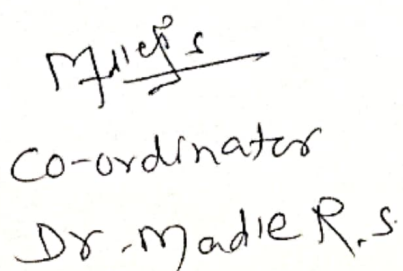 Co-ordinator
Dr. Madle R.S.